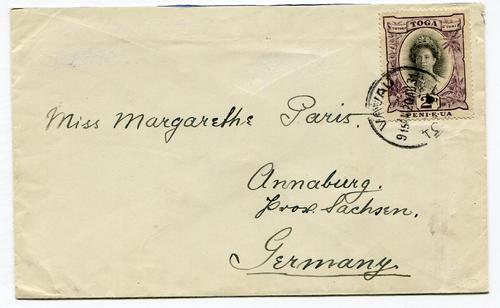 TOGA
2
PENI·E·UA
VAVAU
Miss Margarethe Paris.
Annaburg.
Prov. Sachsen.
Germany.